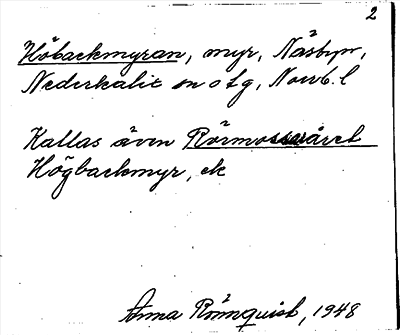 2
Höbackmyran, myr, Näsbyn,
Nederkalix sn o tg, Norrb. l
Kallas även
Högbackmyr, ek
Anna Rönnquist, 1948